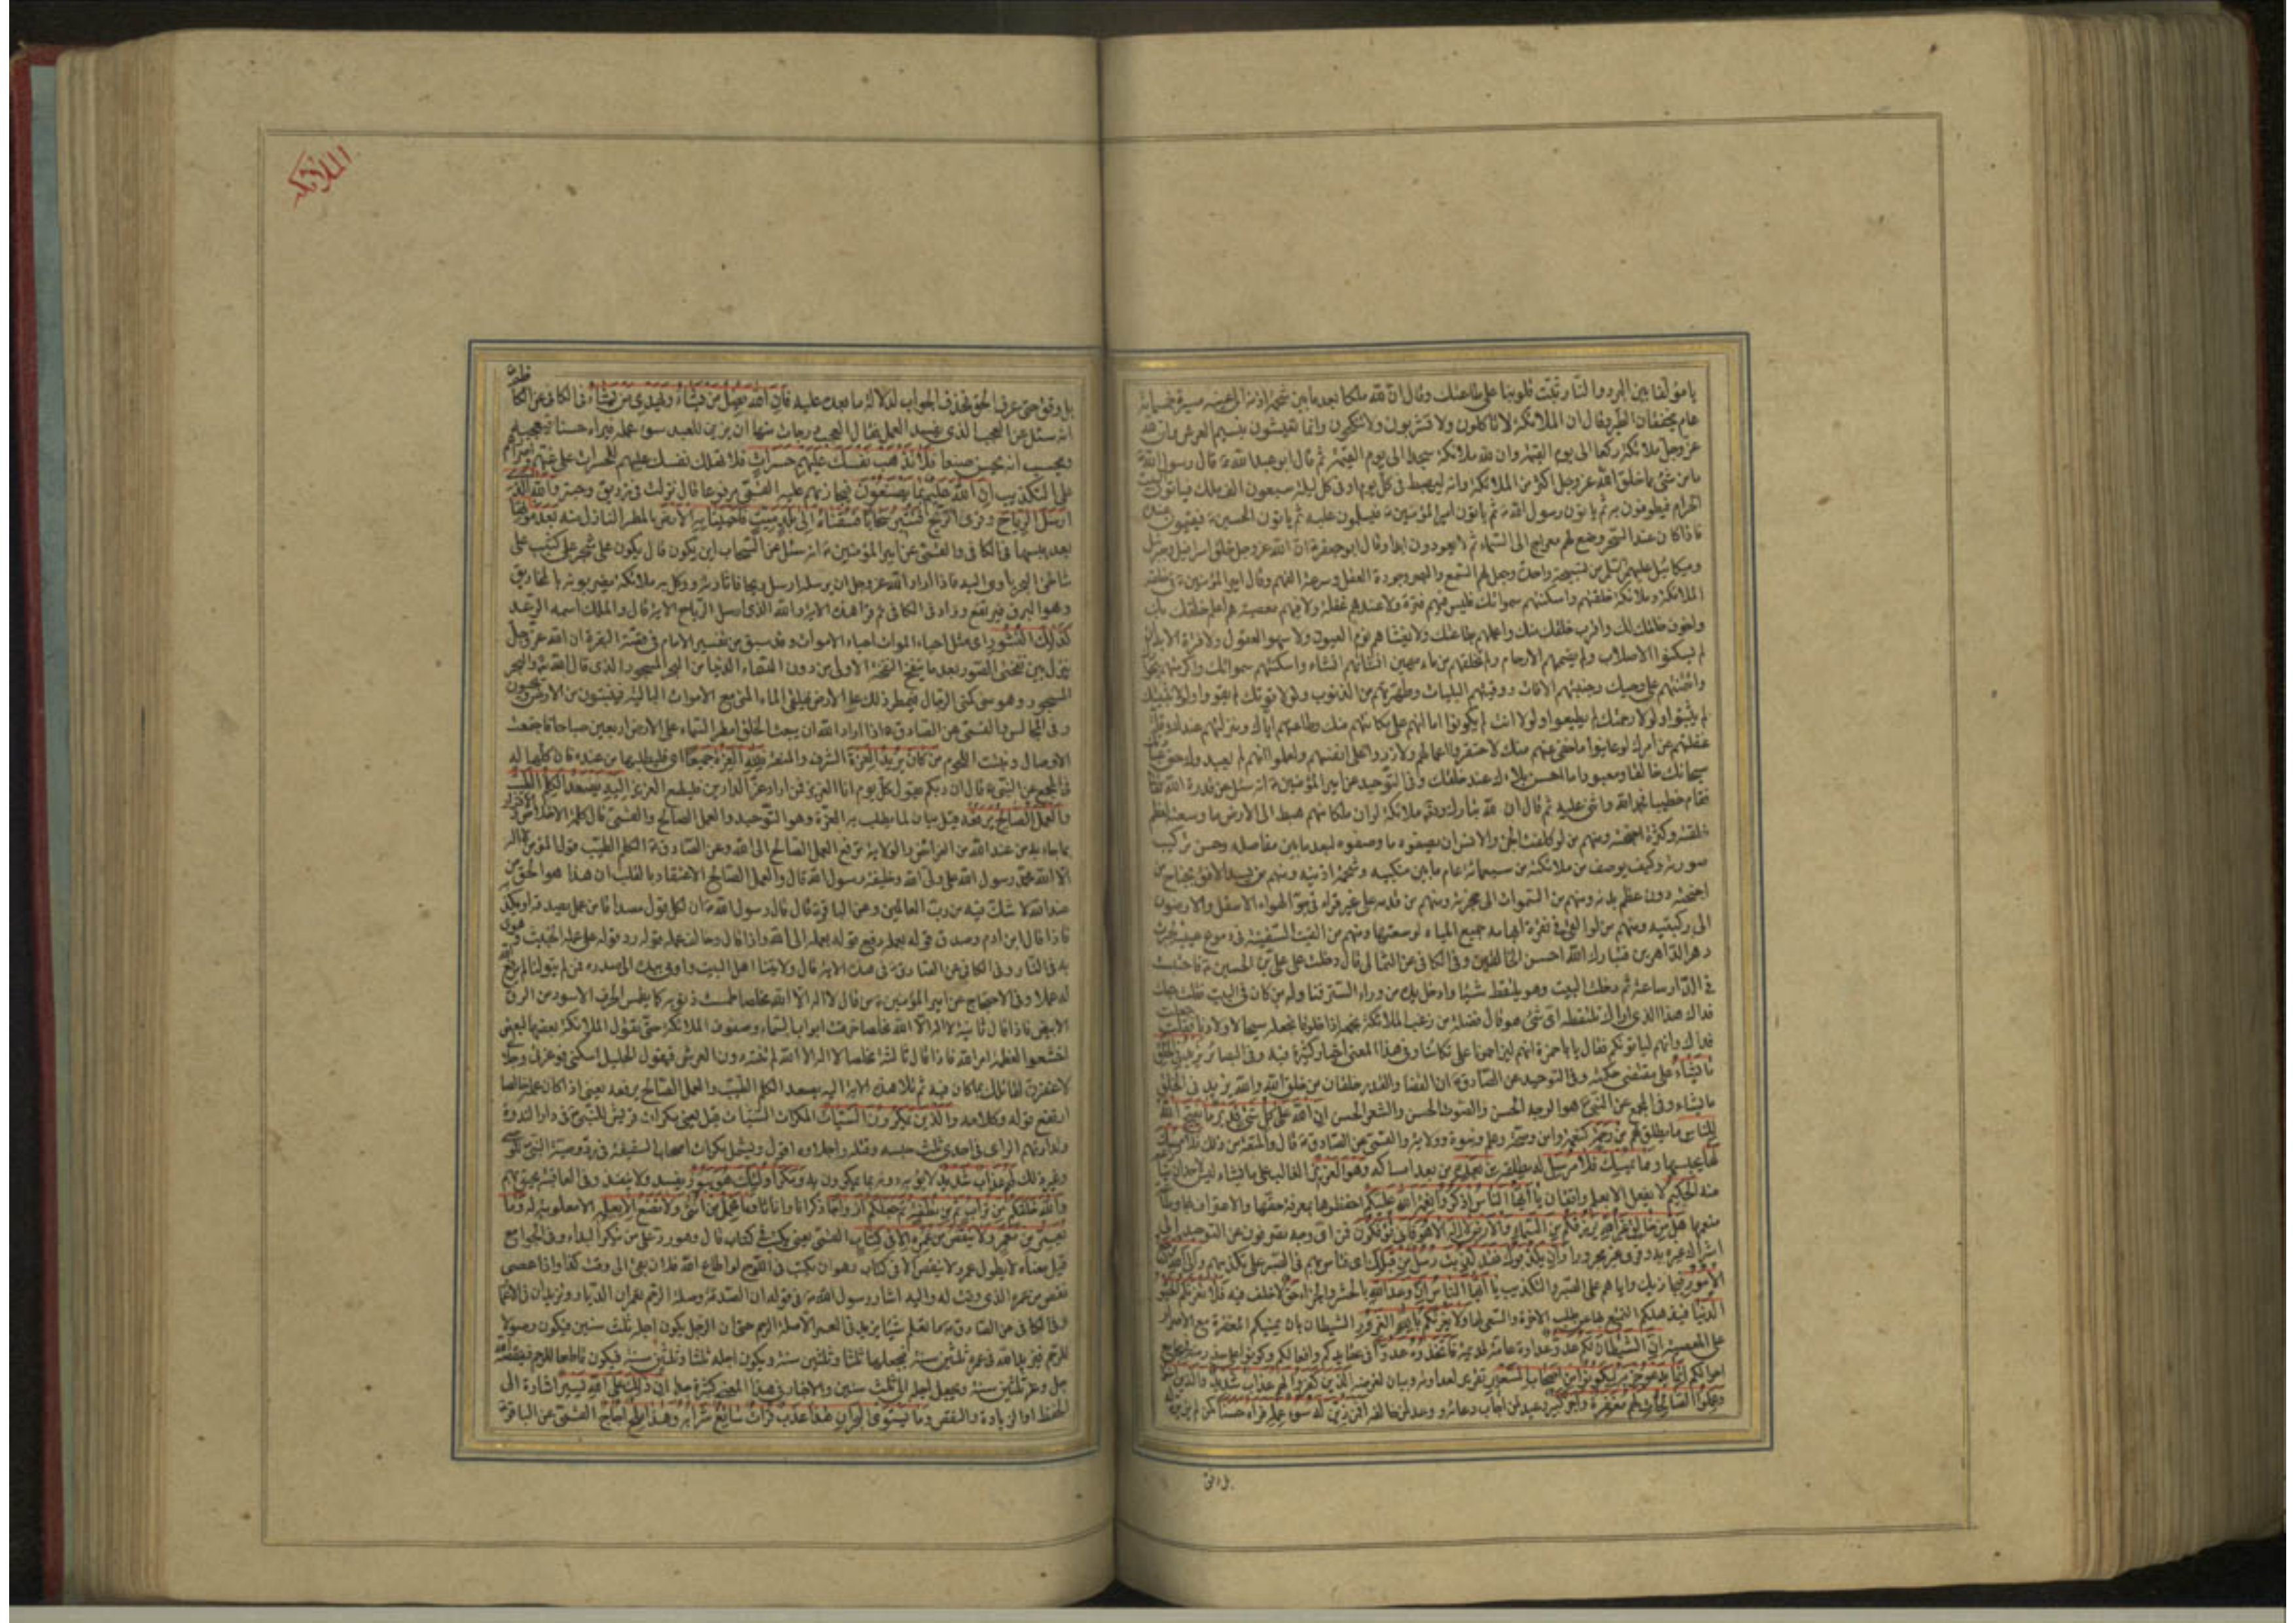 يا مؤلفا بين البرد والنار ثبت قلوبنا على طاعتك وقال ان لله ملكا بعد ما بين شحمة اذنه الى عينه مسيرة خمسمائة
عام بخفقان الطير وقال ان الملائكة لا ياكلون ولا يشربون ولا ينكحون وانما يعيشون بنسيم العرش وان لله
عز وجل ملائكة ركعا الى يوم القيمة وان لله ملائكة سجدا الى يوم القيمة ثم قال ابو عبد الله قال رسول الله
ما من شئ مما خلق الله عز وجل اكثر من الملائكة وانه ليهبط في كل يوم او في كل ليلة سبعون الف ملك فياتون البيت
الحرام فيطوفون به ثم ياتون رسول الله ثم ياتون امير المؤمنين فيسلمون عليه ثم ياتون الحسين فيقيمون عنده
فاذا كان عند السحر وضع لهم معراج الى السماء ثم لا يعودون ابدا وقال ابو جعفر ان الله عز وجل خلق اسرافيل وجبرئيل
وميكائيل من تسبيحة واحدة وجعل لهم السمع والبصر وجودة العقل وسرعة الفهم وقال امير المؤمنين في خلقة
الملائكة وملائكة خلقتهم واسكنتهم سمواتك فليس فيهم فترة ولا عندهم غفلة ولا فيهم معصية هم اعلم خلقك بك
واخوف خلقك لك واقرب خلقك منك واعملهم بطاعتك ولا يغشاهم نوم العيون ولا سهو العقول ولا فترة الابدان
لم يسكنوا الاصلاب ولم يضمهم الارحام ولم تخلقهم من ماء مهين انشاتهم انشاء واسكنتهم سمواتك واكرمتهم بجوارك
وائتمنتهم على وحيك وجنبتهم الافات ووقيتهم البليات وطهرتهم من الذنوب ولولا قوتك لم يقووا ولولا تثبيتك
لم يثبتوا ولولا رحمتك لم يطيعوا ولولا انت لم يكونوا اما انهم على مكانتهم منك وطاعتهم اياك ومنزلتهم عندك وقلة
غفلتهم عن امرك لو عاينوا ما خفي عنهم منك لاحتقروا اعمالهم ولازروا على انفسهم ولعلموا انهم لم يعبدوك حق عبادتك
سبحانك خالقا ومعبودا ما احسن بلاءك عند خلقك وفي التوحيد عن امير المؤمنين انه سئل عن قدرة الله
فقام خطيبا فحمد الله واثنى عليه ثم قال ان لله تبارك وتعالى ملائكة لو ان ملكا منهم هبط الى الارض ما وسعته لعظم
خلقته وكثرة اجنحته ومنهم من لو كلفت الجن والانس ان يصفوه ما وصفوه لبعد ما بين مفاصله وحسن تركيب
صورته وكيف يوصف من ملائكته من سبعمائة عام ما بين منكبيه وشحمة اذنيه ومنهم من يسد الافق بجناح من
اجنحته دون عظم بدنه ومنهم من السموات الى حجزته ومنهم من قدمه على غير قرار في جو الهواء الاسفل والارضون
الى ركبتيه ومنهم من لو القي في نقرة ابهامه جميع المياه لوسعتها ومنهم من لو القيت السفينة في دموع عينيه لجرت
دهر الداهرين فتبارك الله احسن الخالقين وفي الكافي عن الثمالي قال دخلت على علي بن الحسين فاحتبست
في الدار ساعة ثم دخلت البيت وهو يلتقط شيئا وادخل يده من وراء الستر فناوله من كان في البيت فقلت جعلت
فداك هذا الذي اراك تلتقطه اي شئ هو قال فضلة من زغب الملائكة نجمعه اذا خلونا نجعله سبحا لاولادنا فقلت جعلت
فداك وانهم لياتونكم فقال يا با حمزة انهم ليزاحمونا على تكاتنا وفي هذا المعنى اخبار كثيرة فيه وفي البصائر يزيد في الخلق
ما يشاء على مقتضى حكمته وفي التوحيد عن الصادق ان القضا والقدر خلقان من خلق الله والله يزيد في الخلق
ما يشاء وفي المجمع عن النبي هو الوجه الحسن والصوت الحسن والشعر الحسن ان الله على كل شئ قدير ما يفتح الله
للناس ما يطلق لهم من رحمة كنعمة وامن وصحة وعلم ونبوة وولاية والقمي عن الصادق قال والمتعة من ذلك فلا ممسك
لها يحبسها وما يمسك فلا مرسل له يطلقه من بعده من بعد امساكه وهو العزيز الغالب على ما يشاء ليس لاحد ان ينازعه
فيه الحكيم لا يفعل الا بعلم واتقان يا ايها الناس اذكروا نعمة الله عليكم احفظوها بمعرفة حقها والاعتراف بها وطاعة
منعمها هل من خالق غير الله يرزقكم من السماء والارض لا اله الا هو فانى تؤفكون فمن اي وجه تصرفون عن التوحيد الى
اشراك غيره به وان يكذبوك فقد كذبت رسل من قبلك اي فتاس بهم في الصبر على تكذيبهم والى الله ترجع
الامور فيجازيك واياهم على الصبر والتكذيب يا ايها الناس ان وعد الله بالحشر والجزاء حق لا خلف فيه فلا تغرنكم الحيوة
الدنيا فيذهلكم التمتع بها عن طلب الاخرة والسعي لها ولا يغرنكم بالله الغرور الشيطان بان يمنيكم المغفرة مع الاصرار
على المعصية ان الشيطان لكم عدو عداوة عامة قديمة فاتخذوه عدوا في عقايدكم وافعالكم وكونوا على حذر منه في مجامع
احوالكم انما يدعو حزبه ليكونوا من اصحاب السعير تقرير لعداوته وبيان لغرضه الذين كفروا لهم عذاب شديد والذين امنوا
وعملوا الصالحات لهم مغفرة واجر كبير وعيد لمن اجاب دعاءه ووعد لمن خالفه افمن زين له سوء عمله فراه حسنا كمن لم يزين له
بل وفق
الملائكة
بل وفق حتى عرف الحق فحذف الجواب لدلالة ما بعده عليه فان الله يضل من يشاء ويهدي من يشاء في الكافي عن الكاظم
انه سئل عن العجب الذي يفسد العمل فقال العجب درجات منها ان يزين للعبد سوء عمله فيراه حسنا فيعجبه
ويحسب انه يحسن صنعا فلا تذهب نفسك عليهم حسرات فلا تهلك نفسك عليهم للحسرات على غيهم واصرارهم
على التكذيب ان الله عليم بما يصنعون فيجازيهم عليه القمي مرفوعا قال نزلت في زريق وحبتر والله الذي
ارسل الرياح وقرئ الريح فتثير سحابا فسقناه الى بلد ميت فاحيينا به الارض بالمطر النازل منه بعد موتها
بعد يبسها في الكافي والقمي عن امير المؤمنين انه سئل عن السحاب اين يكون قال يكون على شجر على كثيب على
شاطئ البحر ياوي اليه فاذا اراد الله عز وجل ان يرسله ارسل ريحا فاثارته ووكل به ملائكة يضربونه بالمخاريق
وهو البرق فيرتفع وزاد في الكافي ثم قرا هذه الاية والله الذي ارسل الرياح الاية قال والملك اسمه الرعد
كذلك النشور اي مثل احياء الموات احياء الاموات وقد سبق من تفسير الامام في قصة البقرة ان الله عز وجل
ينزل بين نفختي الصور بعد ما ينفخ النفخة الاولى من دون السماء الدنيا من البحر المسجور الذي قال الله والبحر
المسجور وهو مني كمني الرجال فيمطر ذلك على الارض فيلقى الماء المني مع الاموات البالية فينبتون من الارض ويحيون
وفي المجالس والقمي عن الصادق اذا اراد الله ان يبعث الخلق امطر السماء على الارض اربعين صباحا فاجتمعت
الاوصال ونبتت اللحوم من كان يريد العزة الشرف والمنعة فلله العزة جميعا اي فليطلبها من عنده فان كلها له
في المجمع عن النبي قال ان ربكم يقول كل يوم انا العزيز فمن اراد عز الدارين فليطع العزيز اليه يصعد الكلم الطيب
والعمل الصالح يرفعه قيل بيان لما يطلب به العزة وهو التوحيد والعمل الصالح والقمي قال كلمة الاخلاص والاقرار
بما جاء به من عند الله من الفرائض والولاية ترفع العمل الصالح الى الله وعن الصادق الكلم الطيب قول المؤمن لا اله
الا الله محمد رسول الله علي ولي الله وخليفة رسول الله قال والعمل الصالح الاعتقاد بالقلب ان هذا هو الحق من
عند الله لا شك فيه من رب العالمين وعن الباقر قال قال رسول الله ان لكل قول مصداقا من عمل يصدقه او يكذبه
فاذا قال ابن ادم وصدق قوله بعمله رفع قوله بعمله الى الله واذا قال وخالف عمله قوله رد قوله على عمله الخبيث وهوى
به في النار وفي الكافي عن الصادق في هذه الاية قال ولايتنا اهل البيت واومى بيده الى صدره فمن لم يتولنا لم يرفع
له عملا وفي الاحتجاج عن امير المؤمنين من قال لا اله الا الله مخلصا طمست ذنوبه كما يطمس الحرف الاسود من الرق
الابيض فاذا قال ثانية لا اله الا الله مخلصا خرقت ابواب السماء وصفوف الملائكة حتى يقول الملائكة بعضها لبعض
اخشعوا لعظمة امر الله فاذا قال ثالثة مخلصا لا اله الا الله لم تنته دون العرش فيقول الجليل اسكني فوعزتي وجلالي
لاغفرن لقائلك بما كان فيه ثم تلا هذه الاية اليه يصعد الكلم الطيب والعمل الصالح يرفعه يعني اذا كان عمله خالصا
ارتفع قوله وكلامه والذين يمكرون السيئات المكرات السيئات قيل يعني مكرات قريش للنبي في دار الندوة
وتداورهم الراي في احدى ثلث حبسه وقتله واجلاؤه اقول ويشمل مكرات اصحاب السقيفة في رد وصية النبي
وغير ذلك لهم عذاب شديد لا يؤبه دونه بما يمكرون به ومكر اولئك هو يبور يفسد ولا ينفذ وفي العاقبة يحيق بهم
والله خلقكم من تراب ثم من نطفة ثم جعلكم ازواجا ذكرانا واناثا وما تحمل من انثى ولا تضع الا بعلمه الا معلومة له وما
يعمر من معمر ولا ينقص من عمره الا في كتاب القمي يعني يكتب في كتاب قال وهو رد على من ينكر البداء وفي الجوامع
قيل معناه لا يطول عمر ولا ينقص الا في كتاب وهو ان يكتب في اللوح لو اطاع الله فلان بقي الى وقت كذا واذا عصى
نقص من عمره الذي وقت له واليه اشار رسول الله في قوله ان الصدقة وصلة الرحم تعمران الديار وتزيدان في الاعمار
وفي الكافي عن الصادق ما نعلم شيئا يزيد في العمر الا صلة الرحم حتى ان الرجل يكون اجله ثلث سنين فيكون وصولا
للرحم فيزيد الله في عمره ثلثين سنة فيجعلها ثلثا وثلثين سنة ويكون اجله ثلثا وثلثين سنة فيكون قاطعا للرحم فينقصه الله
ثلثين سنة ويجعل اجله الى ثلث سنين والاخبار في هذا المعنى كثيرة جدا ان ذلك على الله يسير اشارة الى
الحفظ او الزيادة والنقص وما يستوي البحران هذا عذب فرات سائغ شرابه وهذا ملح اجاج القمي عن الباقر